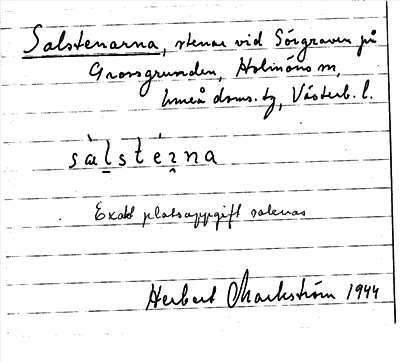 Salstenarna, stenar vid Sörgraven på
Grossgrunden, Holmöns sn,
Umeå doms.tg, Västerb. l.
sàl̠stéɀ̂na
Exakt platsuppgift saknas
Herbert Markström 1944